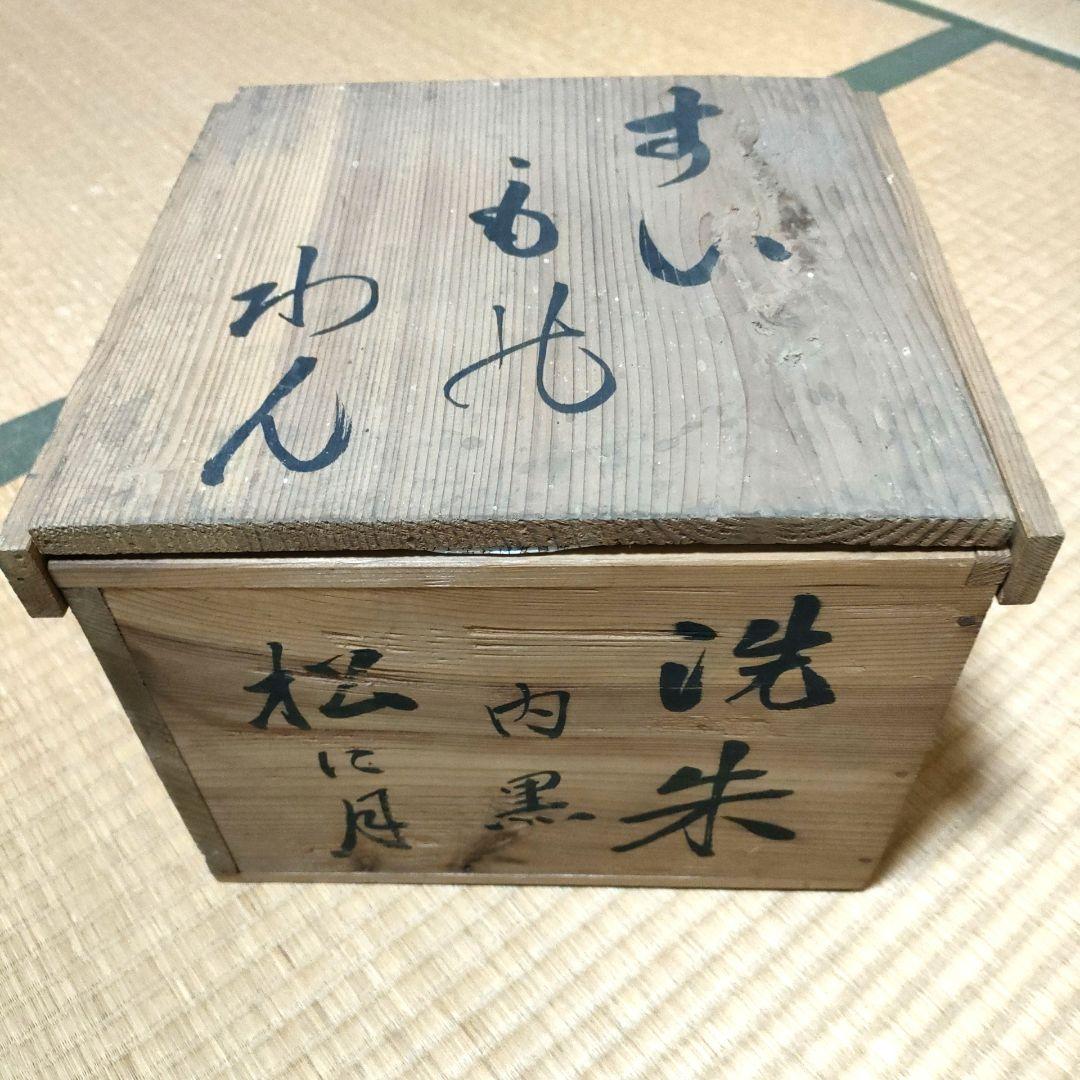 すい
もの
わん
洗朱
内黒
松に月